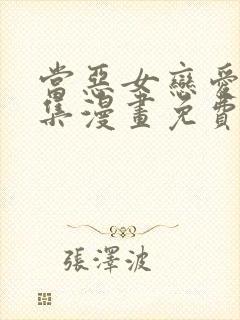 當惡女戀愛
集漫畫免費
張澤波